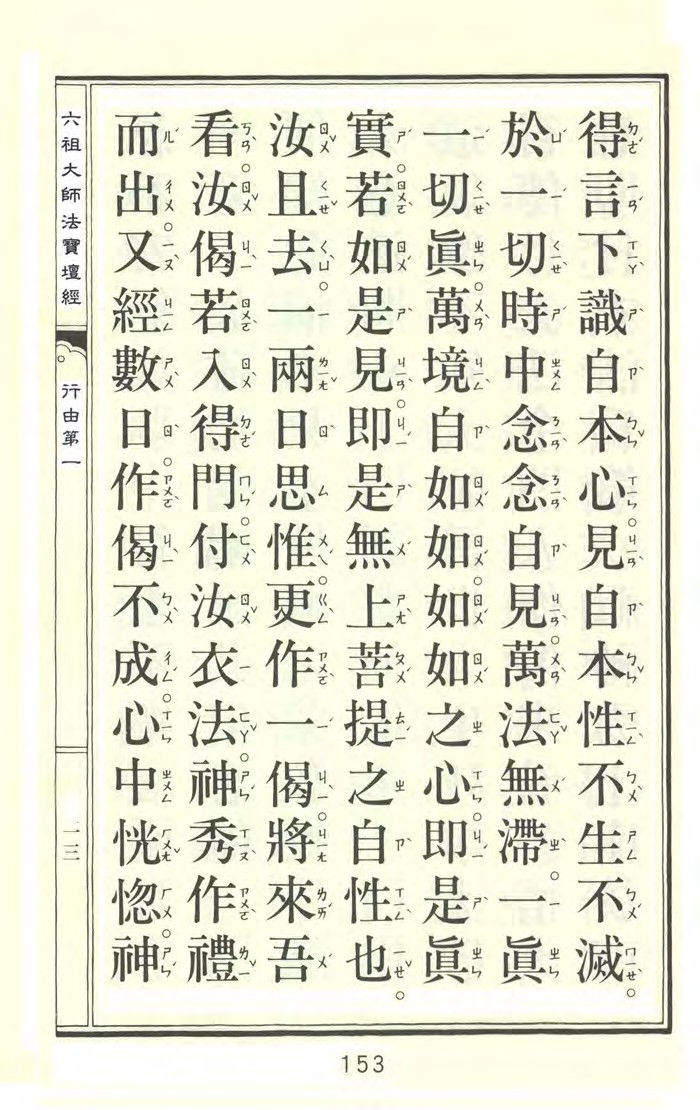 得言下識自本心。見自本性不生不滅。
於一切時中念念自見。萬法無滯。一眞
一切眞。萬境自如如。如如之心。即是眞
實。若如是見。即是無上菩提之自性也。
汝且去。一兩日思惟。更作一偈。將來吾
看。汝偈若入得門。付汝衣法。神秀作禮
而出。又經數日。作偈不成。心中恍惚。神
六祖大師法寶壇經
行由第一
一三
153